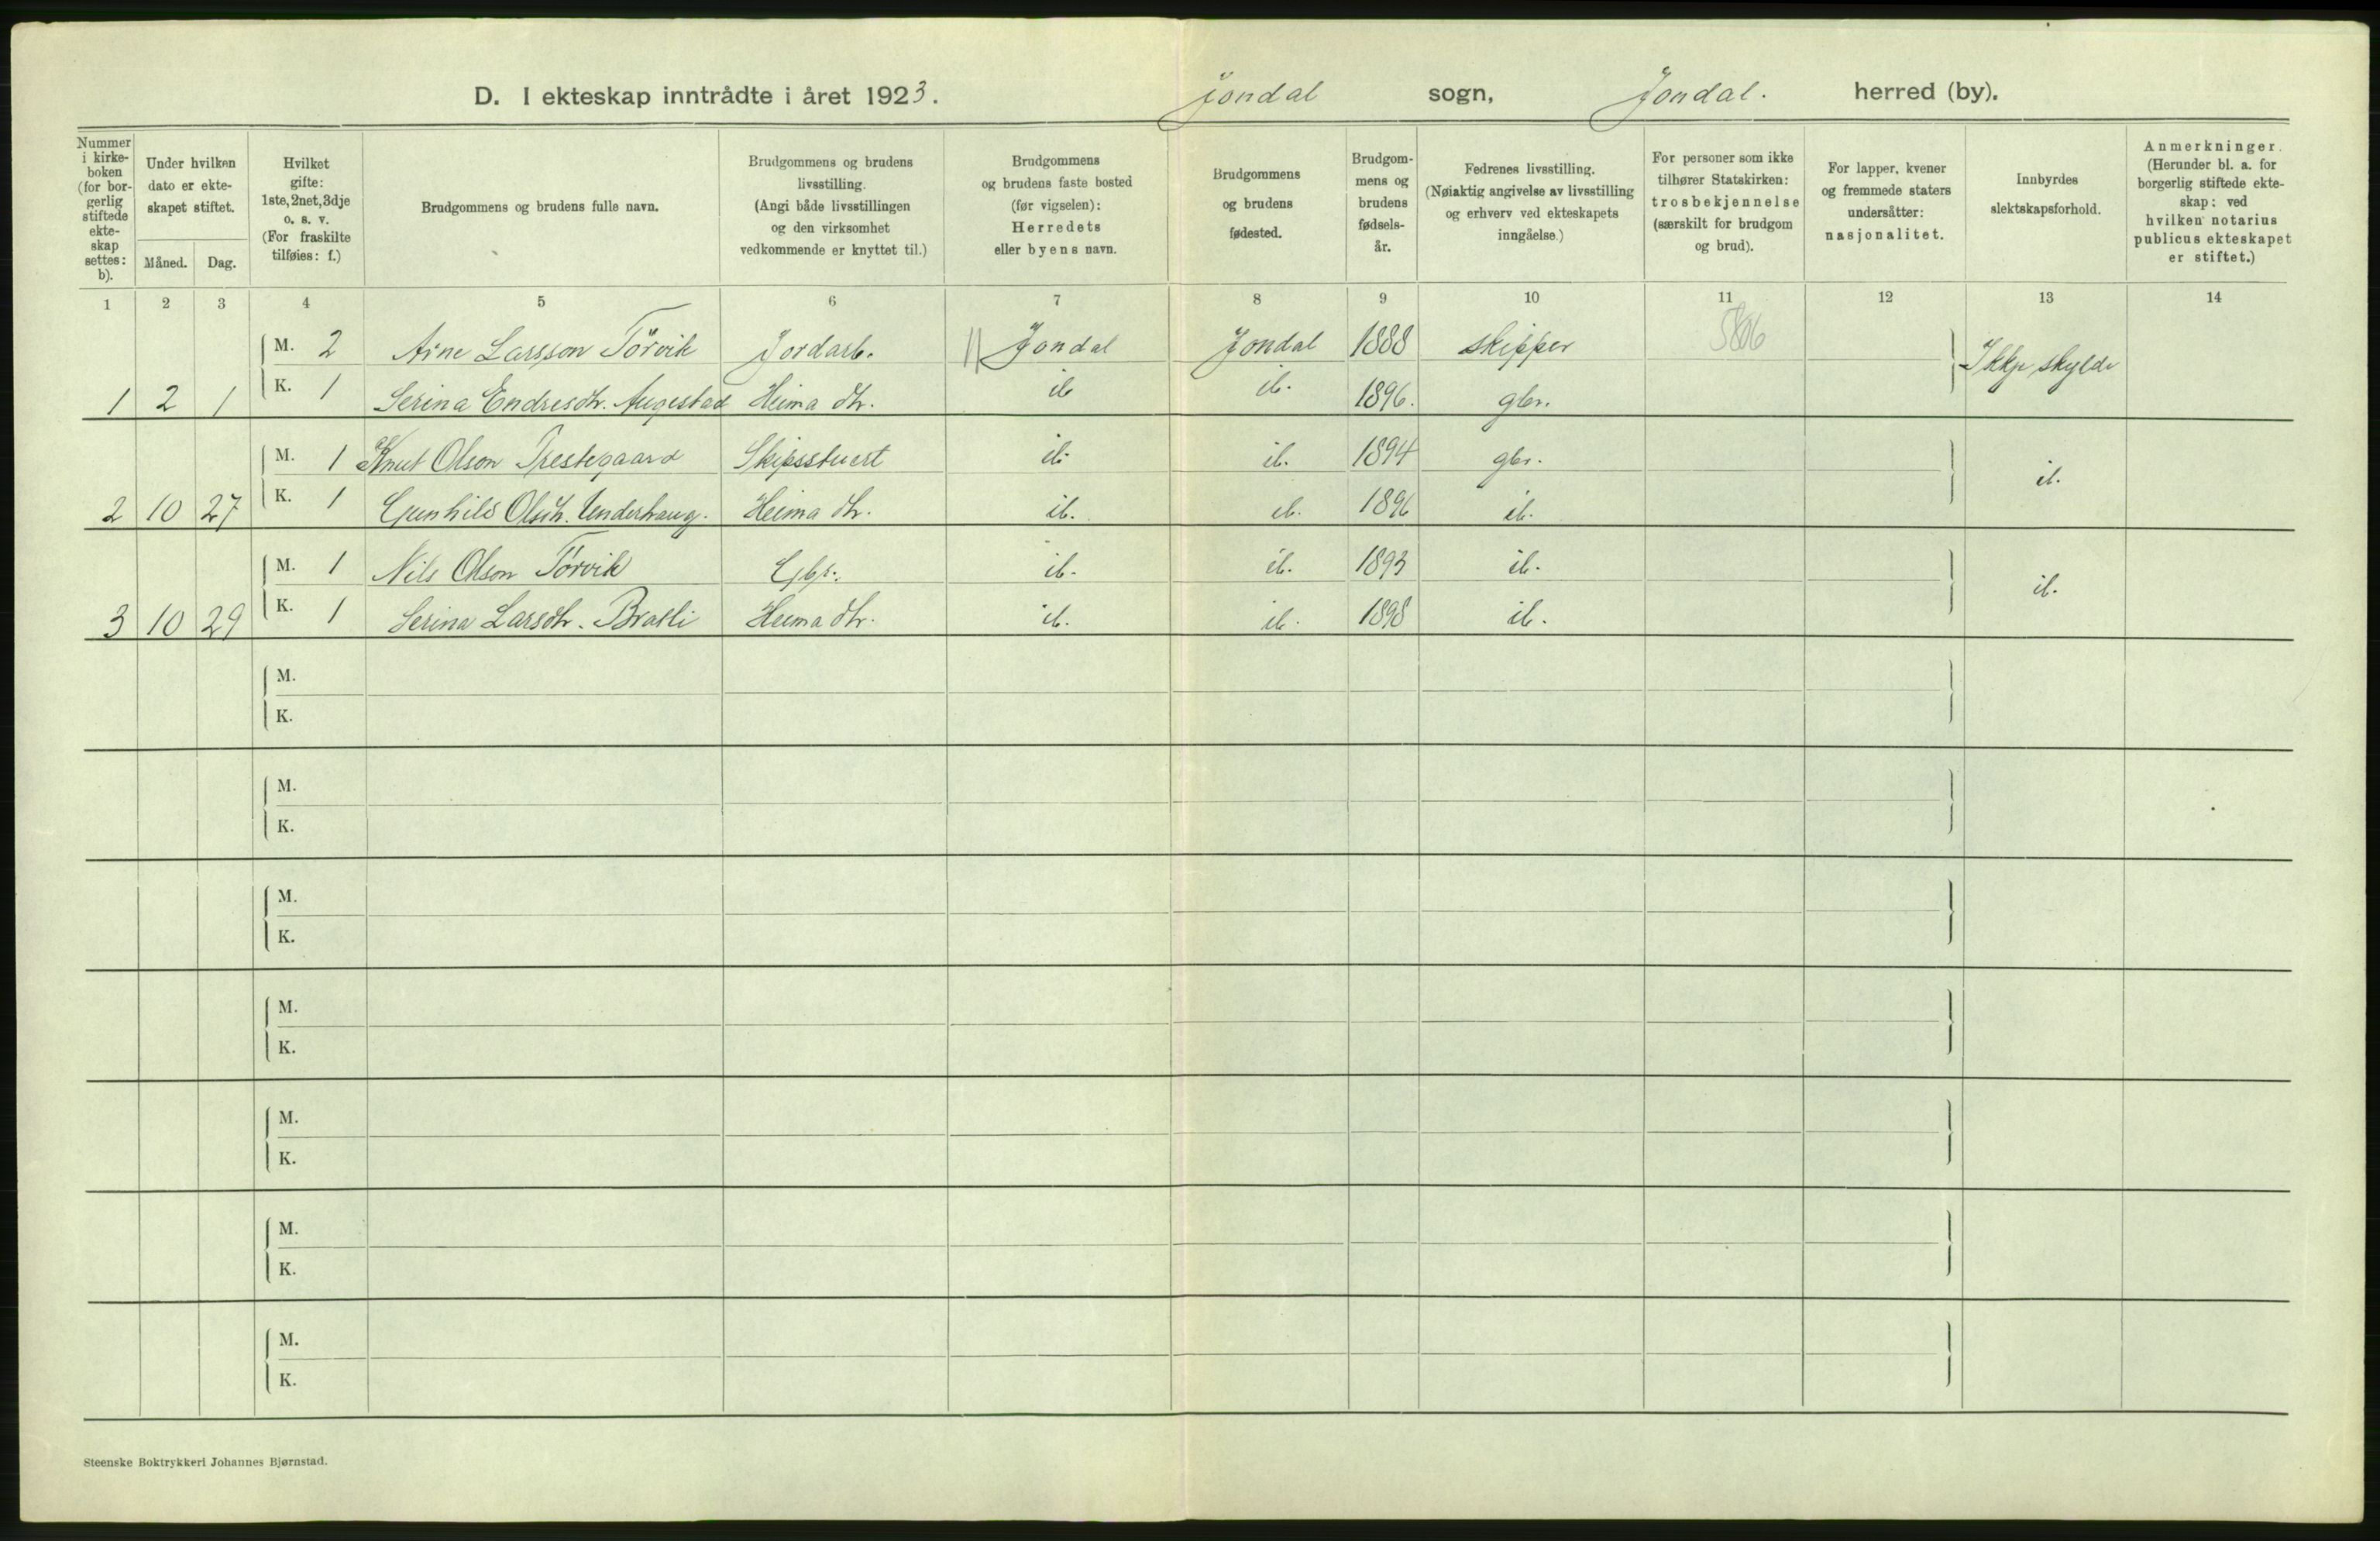 D. I ekteskap inntrådte i året 1923. Jondal sogn, Jondal. herred (by).
Nummer i kirke-boken (for bor-gerlig stiftede ekte-skap settes: b).
Under hvilken dato er ekte-skapet stiftet.
Måned. Dag.
Hvilket gifte: 1ste, 2net, 3dje o. s. v. (For fraskilte tilføies: f.)
Brudgommens og brudens fulle navn.
Brudgommens og brudens livsstilling. (Angi både livsstillingen og den virksomhet vedkommende er knyttet til.)
Brudgommens og brudens faste bosted (før vigselen): Herredets eller byens navn.
Brudgommens og brudens fødested.
Brudgom-mens og brudens fødsels-år.
Fedrenes livsstilling. (Nøiaktig angivelse av livsstilling og erhverv ved ekteskapets inngåelse.)
For personer som ikke tilhører Statskirken: trosbekjennelse (særskilt for brudgom og brud).
For lapper, kvener og fremmede staters undersåtter: nasjonalitet.
Innbyrdes slektskapsforhold.
Anmerkninger. (Herunder bl. a. for borgerlig stiftede ekte-skap: ved hvilken notarius publicus ekteskapet er stiftet.)
1 2 3 4 5 6 7 8 9 10 11 12 13 14
M. 2 Arne Larsson Törvik Jordarb. Jondal Jondal 1888 skipper Ikkje skylde
1 2 1 K. 1 Serina Endresdtr. Augestad Heima dtr. ib ib. 1896. gbr.
M. 1 Knut Olson Prestegaard Skipsstuert ib. ib. 1894 gbr. ib.
2 10 27 K. 1 Gunhild Olsdtr. Underhaug. Heima dtr. ib. ib. 1896 ib.
M. 1 Nils Olson Törvik Gbr. ib. ib. 1893 ib. ib.
3 10 29 K. 1 Serina Larsdtr. Bratli Heima dtr. ib. ib. 1898 ib.
M.
K.
M.
K.
M.
K.
M.
K.
M.
K.
M.
K.
M.
K.
Steenske Boktrykkeri Johannes Bjørnstad.